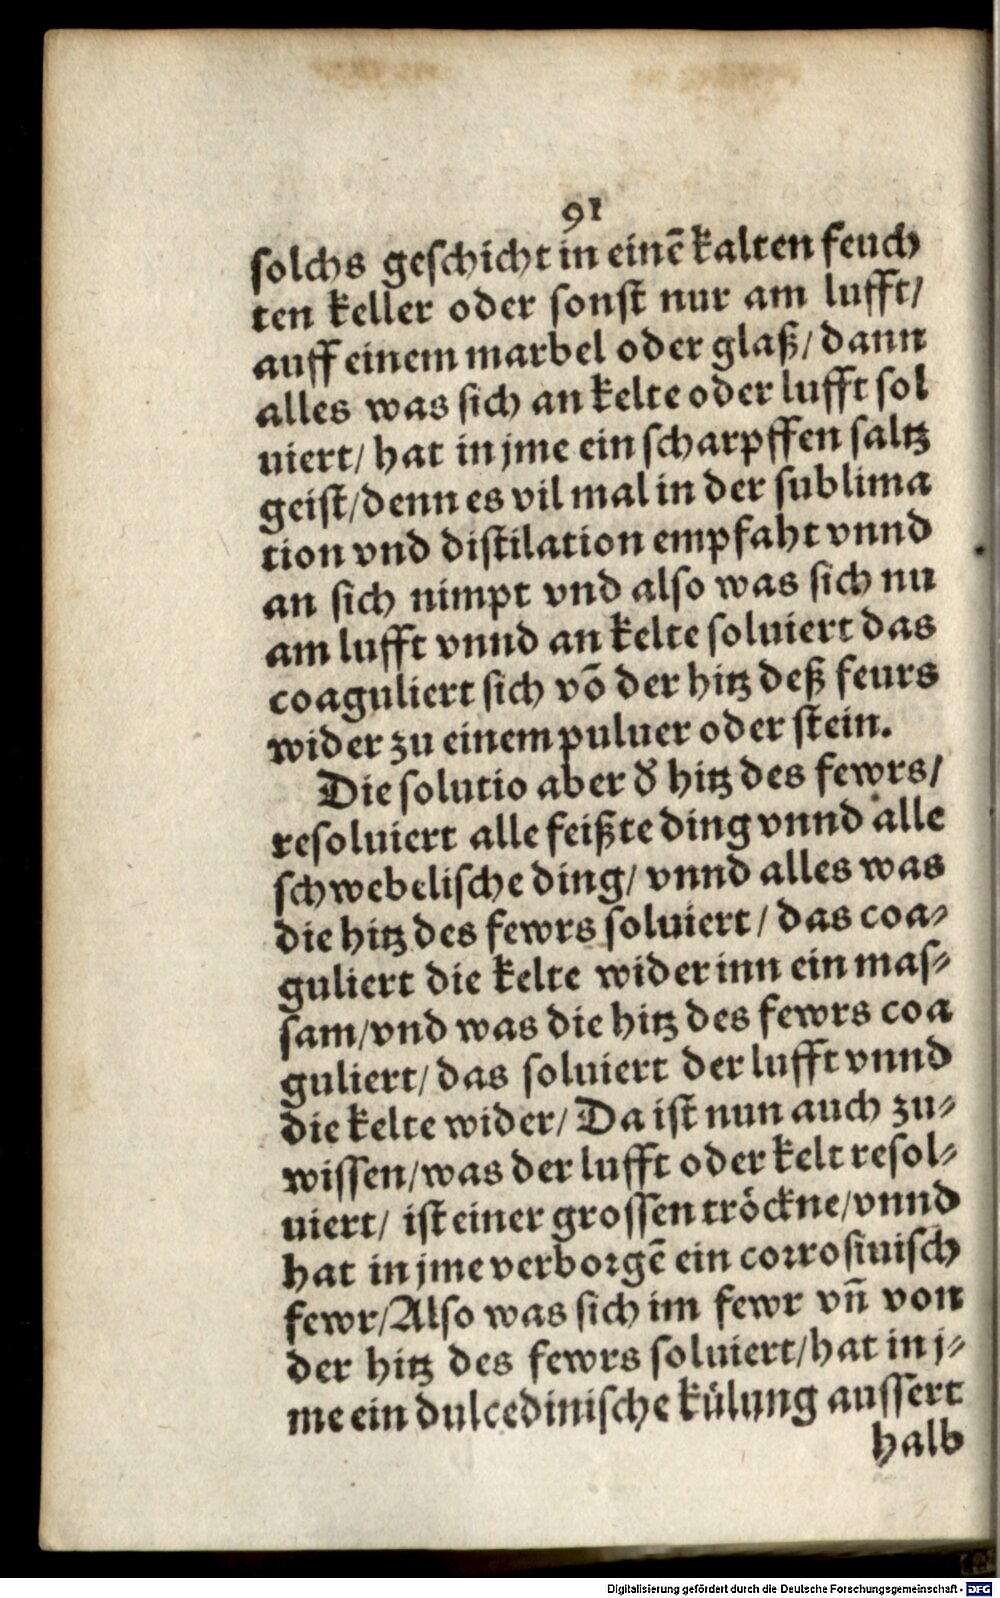 91
solchs geschicht in einē kalten feuch
ten keller oder sonst nur am lufft/
auff einem marbel oder glaß/ dann
alles was sich an kelte oder lufft sol
uiert/ hat in jme ein scharpffen saltz
geist/denn es vil mal in der sublima
tion vnd distilation empfaht vnnd
an sich nimpt vnd also was sich nu
am lufft vnnd an kelte soluiert das
coaguliert sich vō der hitz deß feurs
wider zu einem puluer oder stein.
Die solutio aber d̄ hitz des fewrs/
resoluiert alle feißte ding vnnd alle
schwebelische ding/ vnnd alles was
die hitz des fewrs soluiert/ das coa⸗
guliert die kelte wider inn ein mas⸗
sam/vnd was die hitz des fewrs coa
guliert/ das soluiert der lufft vnnd
die kelte wider/ Da ist nun auch zu⸗
wissen/was der lufft oder kelt resol⸗
uiert/ ist einer grossen tröckne/vnnd
hat in jme verborgē ein corrosiuisch
fewr/Also was sich im fewr vn̄ von
der hitz des fewrs soluiert/hat in j⸗
me ein dulcedinische külung aussert
halb
Digitalisierung gefördert durch die Deutsche Forschungsgemeinschaft - DFG